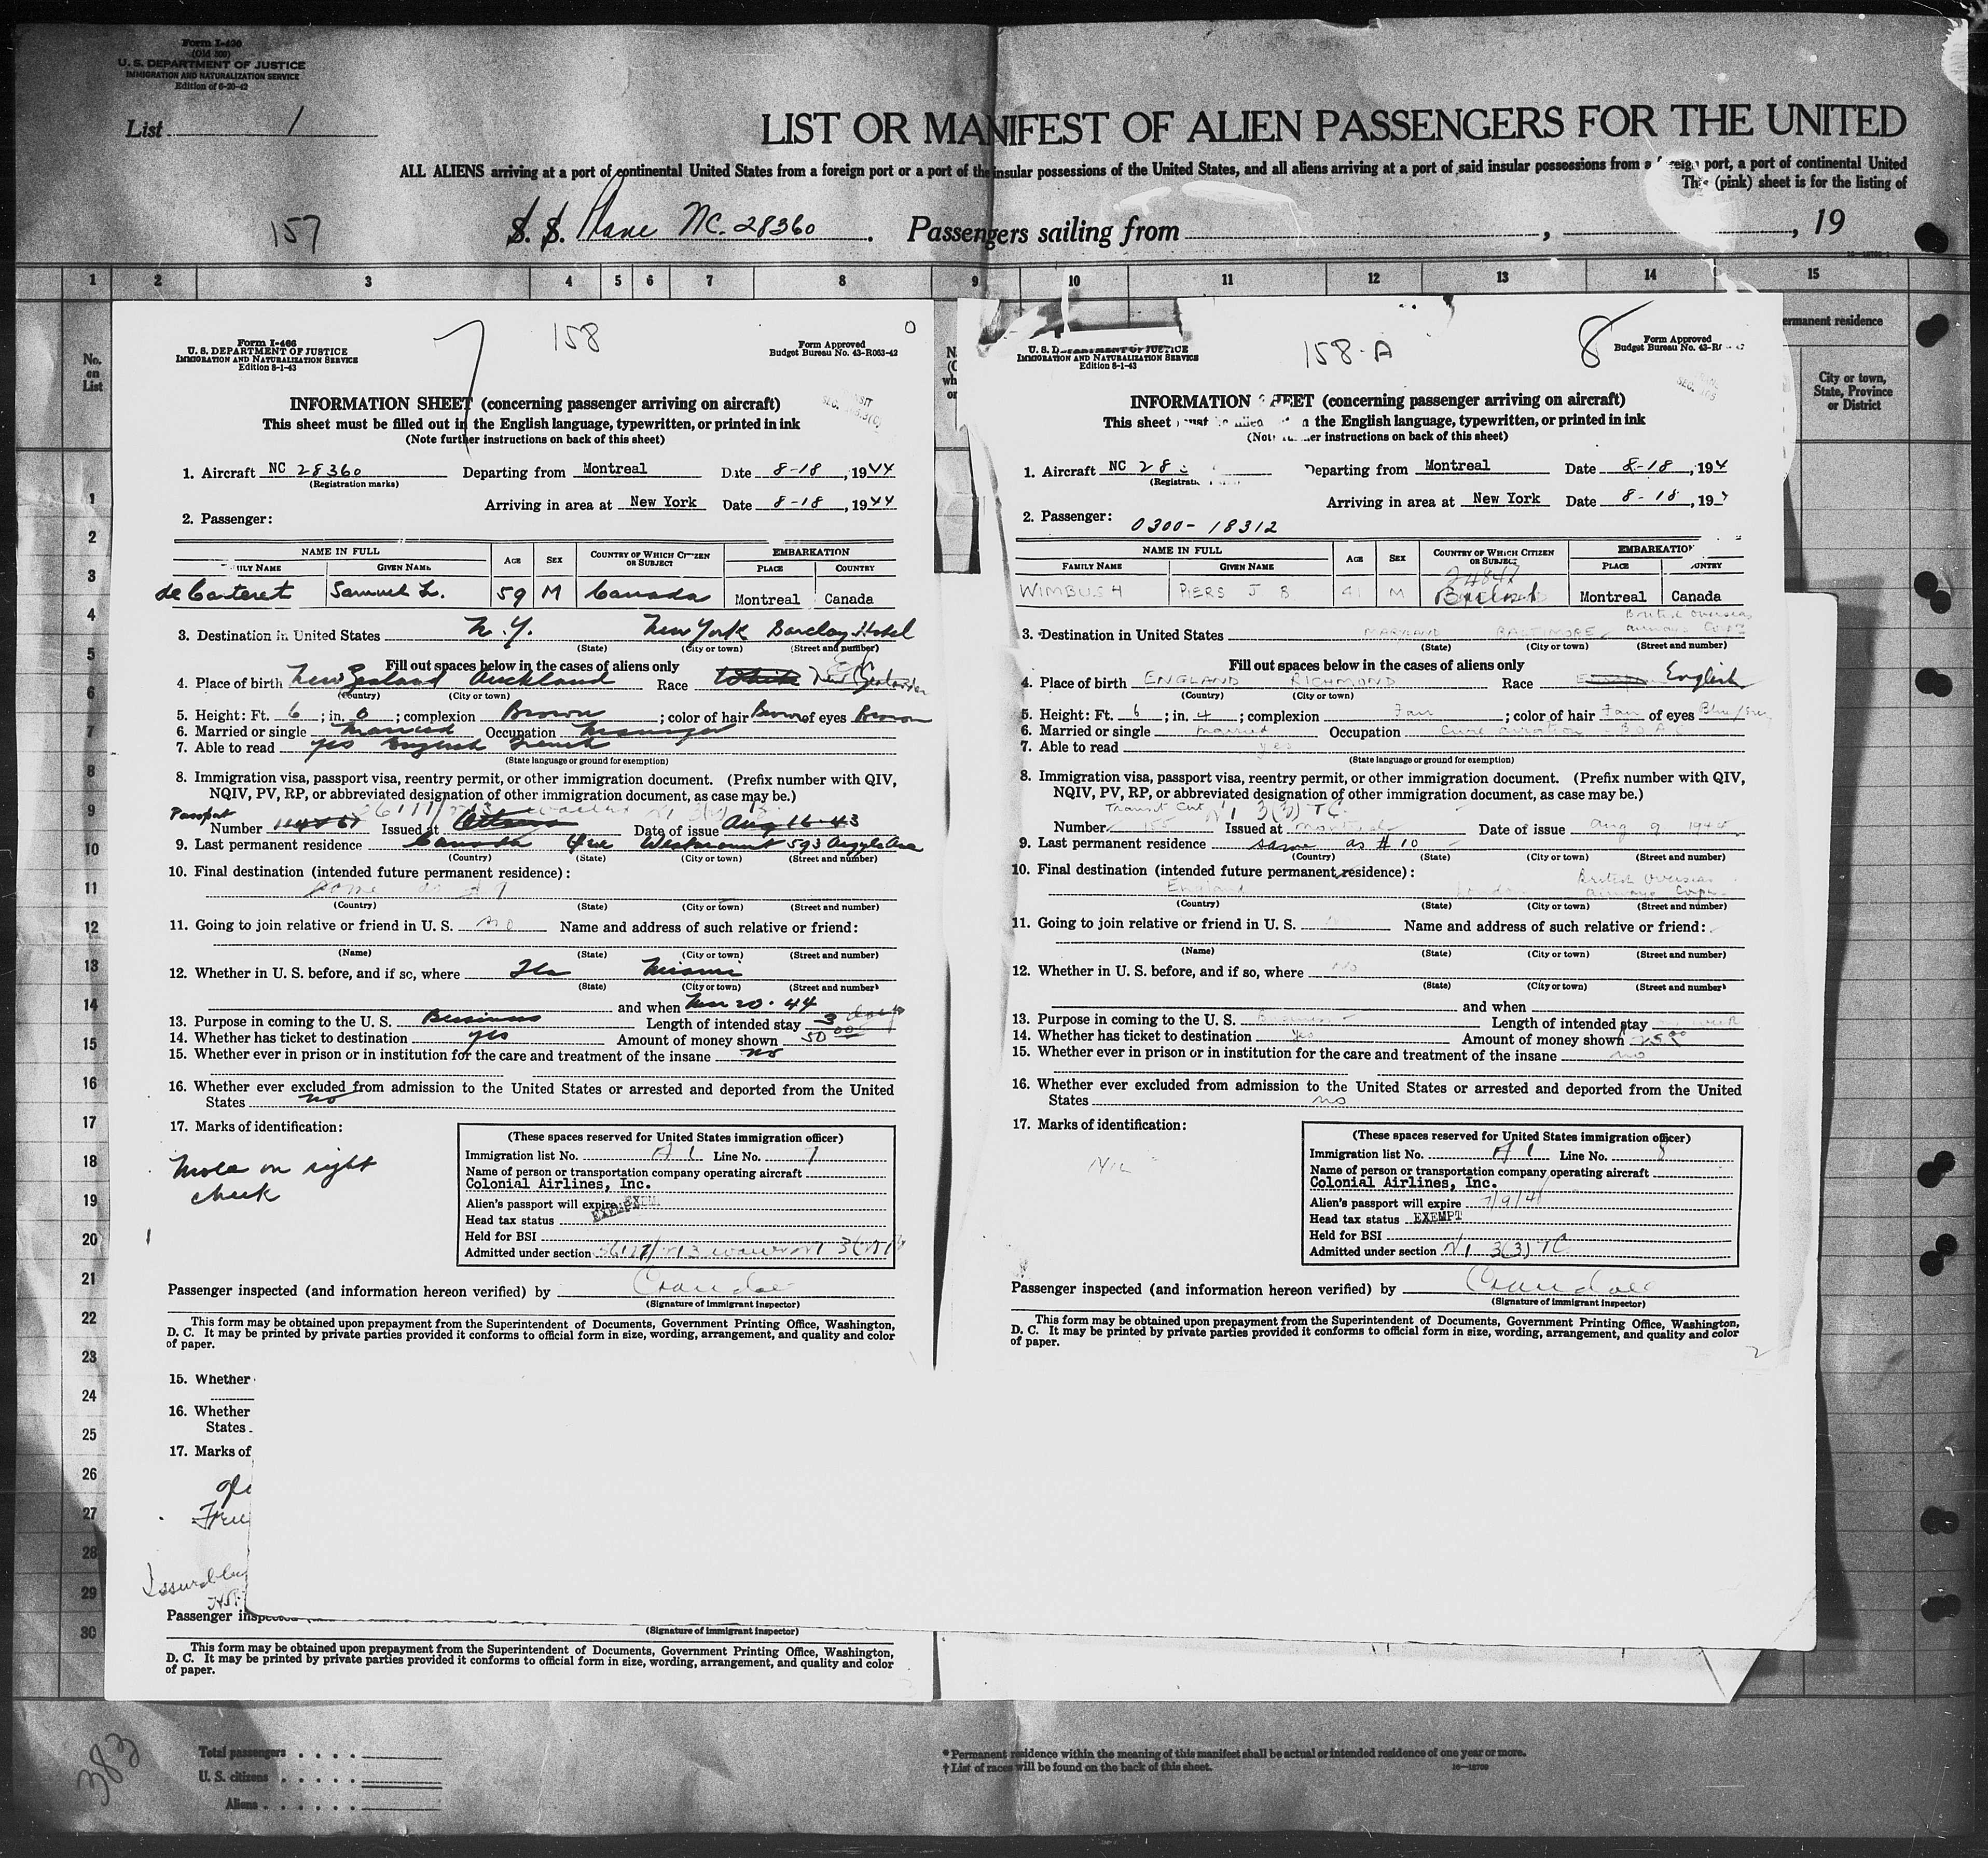 Form I-420
(Old 500)
U. S. DEPARTMENT OF JUSTICE
IMMIGRATION AND NATURALIZATION SERVICE
Edition of 6-20-42
List 1
LIST OR MANIFEST OF ALIEN PASSENGERS FOR THE UNITED
ALL ALIENS arriving at a port of continental United States from a foreign port or a port of the insular possessions of the United States, and all aliens arriving at a port of said insular possessions from a foreign port, a port of continental United
This (pink) sheet is for the listing of
157
S. S. Plane NC. 28360. Passengers sailing from , , 19
1 2 3 4 5 6 7 8 9 10 11 12 13 14 15
No. on List
ermanent residence
City or town, State, Province or District
1
2
3
4
5
6
7
8
9
10
11
12
13
14
15
16
17
18
19
20
21
22
23
24
25
26
27
28
29
30
7
158
0
Form I-466
U. S. DEPARTMENT OF JUSTICE
IMMIGRATION AND NATURALIZATION SERVICE
Edition 8-1-43
Form Approved
Budget Bureau No. 43-R063-42
INFORMATION SHEET (concerning passenger arriving on aircraft)
This sheet must be filled out in the English language, typewritten, or printed in ink
(Note further instructions on back of this sheet)
1. Aircraft NC 28360 Departing from Montreal Date 8-18, 1944
(Registration marks)
Arriving in area at New York Date 8-18, 1944
2. Passenger:
NAME IN FULL AGE SEX COUNTRY OF WHICH CITIZEN OR SUBJECT EMBARKATION
ILY NAME GIVEN NAME PLACE COUNTRY
de Carteret Samuel L. 59 M Canada Montreal Canada
3. Destination in United States N.Y. New York Barclay Hotel
(State) (City or town) (Street and number)
Fill out spaces below in the cases of aliens only
4. Place of birth New Zealand Auckland Race White New Zealander
(Country) (City or town)
5. Height: Ft. 6; in. 0; complexion Brown; color of hair Brown of eyes Brown
6. Married or single Married Occupation Manager
7. Able to read yes English French
(State language or ground for exemption)
8. Immigration visa, passport visa, reentry permit, or other immigration document. (Prefix number with QIV, NQIV, PV, RP, or abbreviated designation of other immigration document, as case may be.)
Passport
Number Issued at Ottawa Date of issue Aug 16-43
9. Last permanent residence Canada Que Westmount 593 Argyle Ave
(Country) (State) (City or town) (Street and number)
10. Final destination (intended future permanent residence):
same as # 9
(Country) (State) (City or town) (Street and number)
11. Going to join relative or friend in U. S. no Name and address of such relative or friend:
(Name) (State) (City or town) (Street and number)
12. Whether in U. S. before, and if so, where Fla Miami
(State) (City or town) (Street and number)
and when Mar 20-44
13. Purpose in coming to the U. S. Business Length of intended stay 3 days
14. Whether has ticket to destination yes Amount of money shown 50 00
15. Whether ever in prison or in institution for the care and treatment of the insane no
16. Whether ever excluded from admission to the United States or arrested and deported from the United States no
17. Marks of identification:
Mole on right
cheek
(These spaces reserved for United States immigration officer)
Immigration list No. A 1 Line No. 7
Name of person or transportation company operating aircraft
Colonial Airlines, Inc.
Alien's passport will expire
Head tax status EXEMPT
Held for BSI
Admitted under section
Passenger inspected (and information hereon verified) by Crandall
(Signature of immigrant inspector)
This form may be obtained upon prepayment from the Superintendent of Documents, Government Printing Office, Washington,
D. C. It may be printed by private parties provided it conforms to official form in size, wording, arrangement, and quality and color
of paper.
15. Whether
16. Whether
States
17. Marks of
Passenger inspec
(Signature of immigrant inspector)
This form may be obtained upon prepayment from the Superintendent of Documents, Government Printing Office, Washington,
D. C. It may be printed by private parties provided it conforms to official form in size, wording, arrangement, and quality and color
of paper.
158-A
8
U. S. DEPARTMENT OF JUSTICE
IMMIGRATION AND NATURALIZATION SERVICE
Edition 8-1-43
Form Approved
Budget Bureau No. 43-R
INFORMATION SHEET (concerning passenger arriving on aircraft)
This sheet must be filled in the English language, typewritten, or printed in ink
(Note further instructions on back of this sheet)
1. Aircraft NC 28 Departing from Montreal Date 8-18, 194
(Registrati
Arriving in area at New York Date 8-18, 19
2. Passenger: 0300-18312
NAME IN FULL AGE SEX COUNTRY OF WHICH CITIZEN OR SUBJECT EMBARKATION
FAMILY NAME GIVEN NAME PLACE COUNTRY
24847
WIMBUSH PIERS J. B. 41 M Montreal Canada
3. Destination in United States MARYLAND BALTIMORE British Overseas Airways Corp
(State) (City or town) (Street and number)
Fill out spaces below in the cases of aliens only
4. Place of birth ENGLAND RICHMOND Race English
(Country) (City or town)
5. Height: Ft. 6; in. 4; complexion Fair; color of hair Fair of eyes Blue/Grey
6. Married or single married Occupation Civil aviation - BOAC
7. Able to read yes
(State language or ground for exemption)
8. Immigration visa, passport visa, reentry permit, or other immigration document. (Prefix number with QIV, NQIV, PV, RP, or abbreviated designation of other immigration document, as case may be.)
Transit Cert N1 3(3) TC
Number 155 Issued at Montreal Date of issue Aug 9 1944
9. Last permanent residence same as # 10
(Country) (State) (City or town) (Street and number)
10. Final destination (intended future permanent residence):
England London British Overseas Airways Corp.
(Country) (State) (City or town) (Street and number)
11. Going to join relative or friend in U. S. Name and address of such relative or friend:
(Name) (State) (City or town) (Street and number)
12. Whether in U. S. before, and if so, where No
(State) (City or town) (Street and number)
and when
13. Purpose in coming to the U. S. Business Length of intended stay week
14. Whether has ticket to destination yes Amount of money shown
15. Whether ever in prison or in institution for the care and treatment of the insane no
16. Whether ever excluded from admission to the United States or arrested and deported from the United States no
17. Marks of identification:
(These spaces reserved for United States immigration officer)
Immigration list No. A 1 Line No. 8
Name of person or transportation company operating aircraft
Colonial Airlines, Inc.
Alien's passport will expire
Head tax status EXEMPT
Held for BSI
Admitted under section N1 3(3) TC
Passenger inspected (and information hereon verified) by Crandall
(Signature of immigrant inspector)
This form may be obtained upon prepayment from the Superintendent of Documents, Government Printing Office, Washington,
D. C. It may be printed by private parties provided it conforms to official form in size, wording, arrangement, and quality and color
of paper.
2
383
Total passengers
U. S. citizens
Aliens
*Permanent residence within the meaning of this manifest shall be actual or intended residence of one year or more.
†List of races will be found on the back of this sheet.